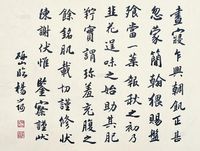 晝寢乍興朝飢正甚
忽蒙簡翰猥賜盤
飧當一葉報秋之初乃
韭花逞味之始助其肥
羜實謂珍羞充腹之
餘銘肌載切謹修狀
陳謝伏惟鑒察謹狀
山臨楊少師